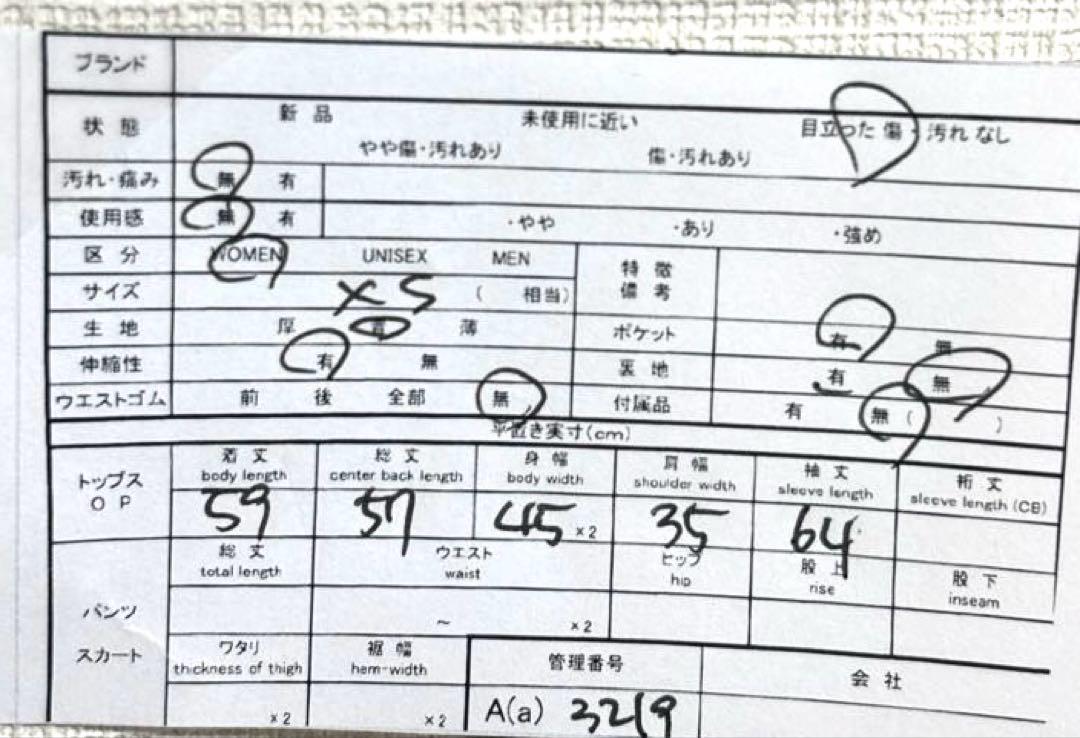 ブランド
状態 新品 未使用に近い 目立った傷・汚れなし
やや傷・汚れあり 傷・汚れあり
汚れ・痛み 無 有
使用感 無 有 ・やや ・あり ・強め
区分 WOMEN UNISEX MEN 特徴
備考
サイズ XS ( 相当)
生地 厚 普 薄 ポケット 有 無
伸縮性 有 無 裏地 有 無
ウエストゴム 前 後 全部 無 付属品 有 無 ( )
平置き実寸(cm)
トップス
OP
着丈 総丈 身幅 肩幅 袖丈 裄丈
body length center back length body width shoulder width sleeve length sleeve length (CB)
59 57 45 ×2 35 64
パンツ
スカート
総丈 ウエスト ヒップ 股上 股下
total length waist hip rise inseam
~ ×2
ワタリ 裾幅 管理番号 会社
thickness of thigh hem-width
×2 ×2 A(a) 3219